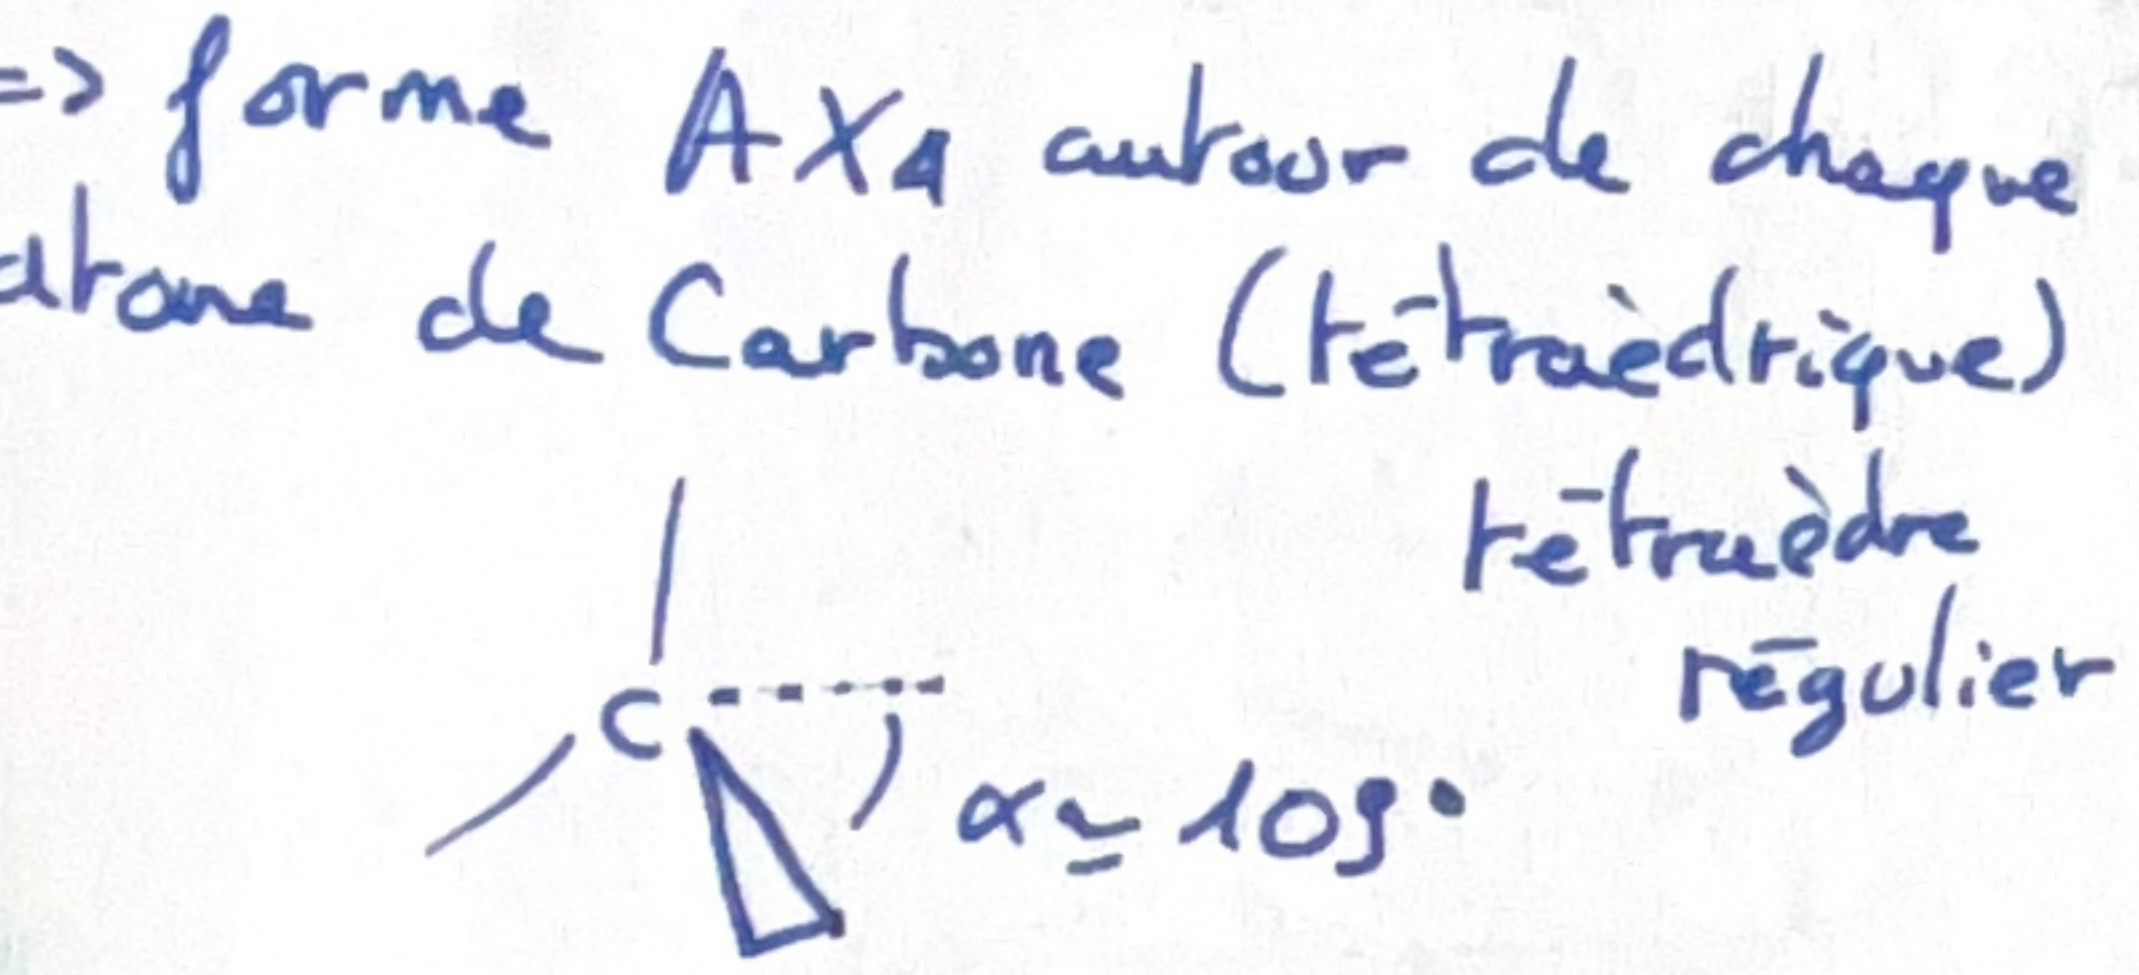 => forme AX4 autour de chaque
atome de Carbone (tétraèdrique)
tétraèdre
régulier
C
α ≃ 109°